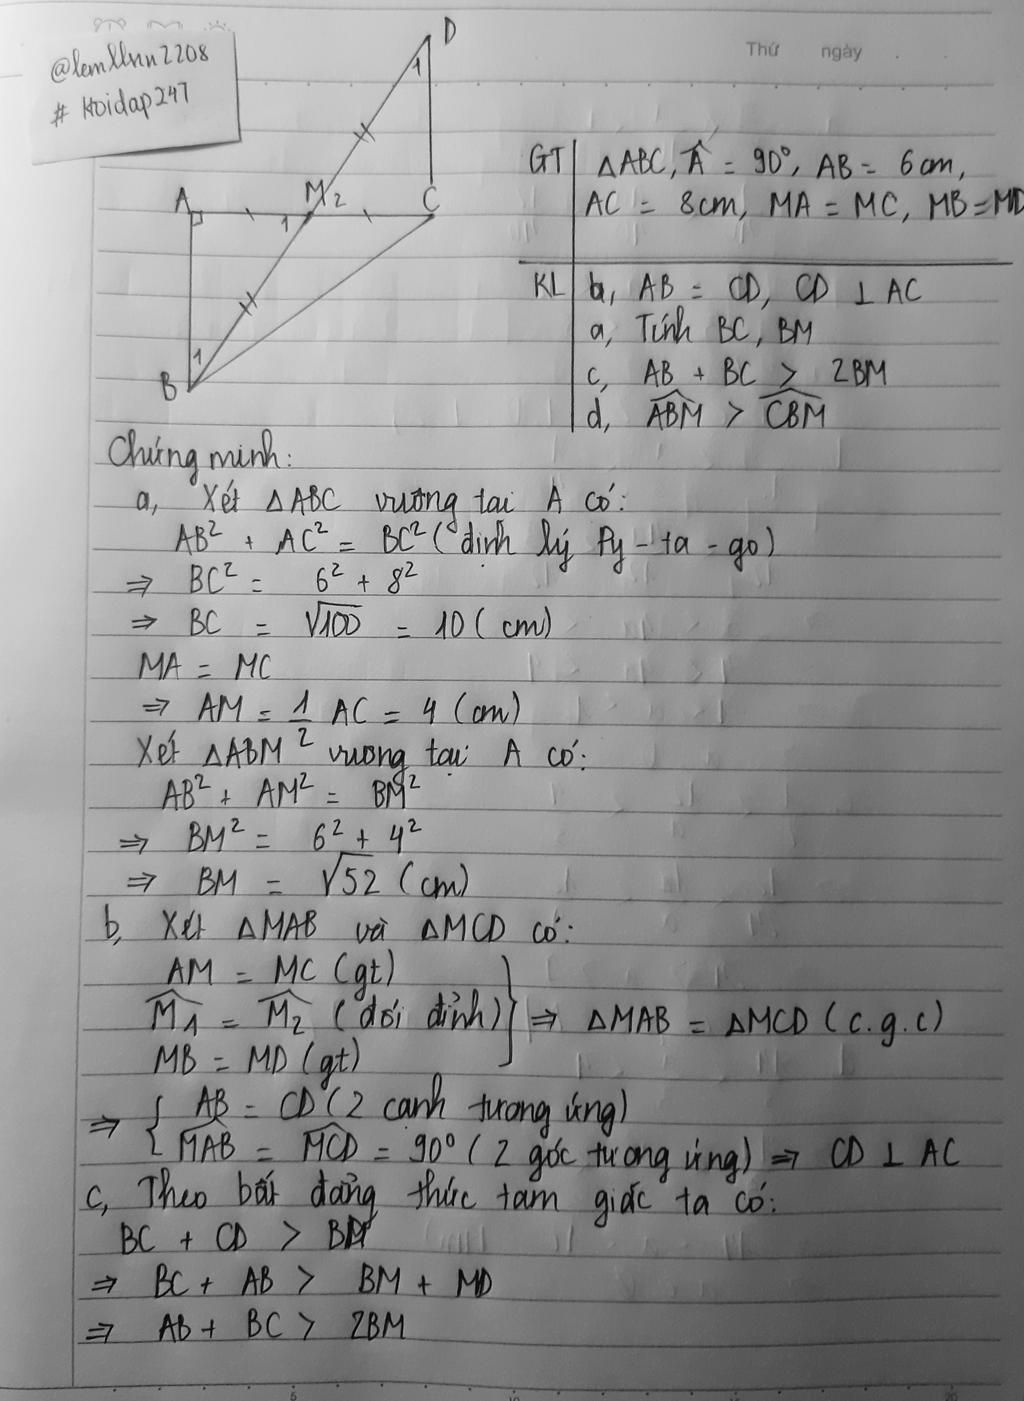 @lemllnn2208
# Hoidap247
Thứ ngày
D
1
A M 2 C
1
1
B
GT ΔABC, Â = 90°, AB = 6cm,
AC = 8cm, MA = MC, MB = MD
KL b, AB = CD, CD ⊥ AC
a, Tính BC, BM
c, AB + BC > 2BM
d, \widehat{ABM} > \widehat{CBM}
Chứng minh:
a, Xét ΔABC vuông tại A có:
AB² + AC² = BC² (định lý Py-ta-go)
⇒ BC² = 6² + 8²
⇒ BC = √100 = 10 (cm)
MA = MC
⇒ AM = \frac{1}{2} AC = 4 (cm)
Xét ΔABM vuông tại A có:
AB² + AM² = BM²
⇒ BM² = 6² + 4²
⇒ BM = √52 (cm)
b, Xét ΔMAB và ΔMCD có:
AM = MC (gt)
\widehat{M_1} = \widehat{M_2} (đối đỉnh) ⇒ ΔMAB = ΔMCD (c.g.c)
MB = MD (gt)
⇒ { AB = CD (2 cạnh tương ứng)
\widehat{MAB} = \widehat{MCD} = 90° (2 góc tương ứng) ⇒ CD ⊥ AC
c, Theo bất đẳng thức tam giác ta có:
BC + CD > BD
⇒ BC + AB > BM + MD
⇒ AB + BC > 2BM